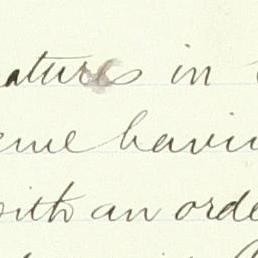 atures in
eme havin
with an orde